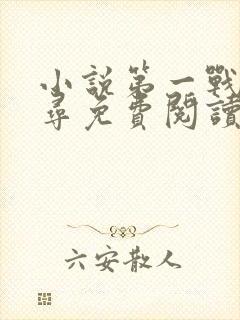 小說第一戰
尋免費閱讀
六安散人